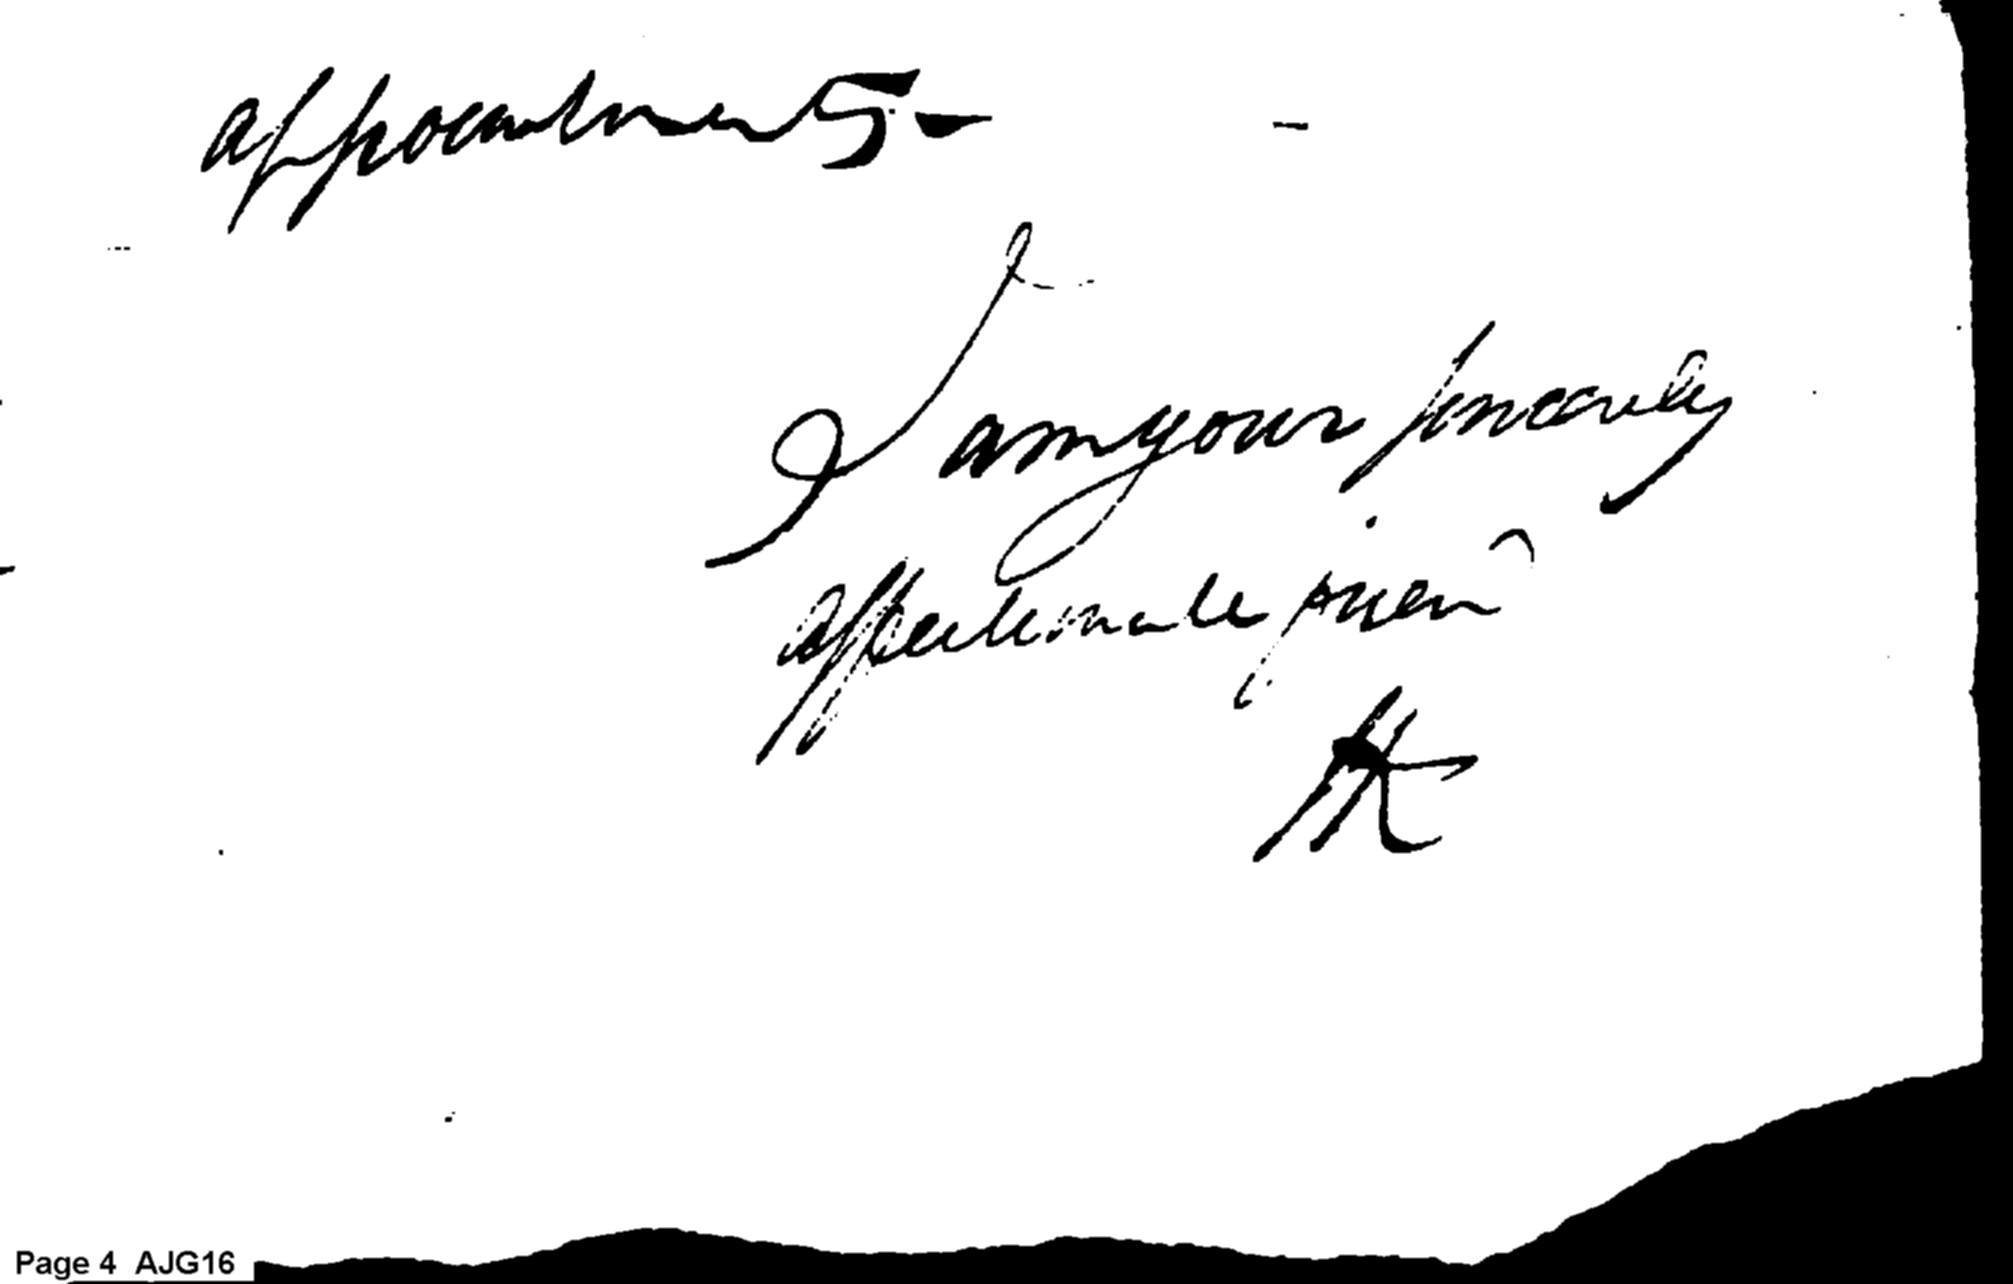 appointments –
I am your sincerely
affectionate frien
HK
Page 4 AJG16